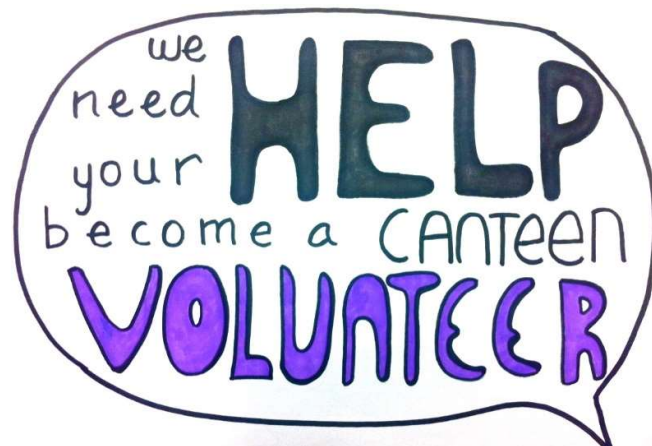 we
need
your
HELP
become a CANTEEN
VOLUNTEER